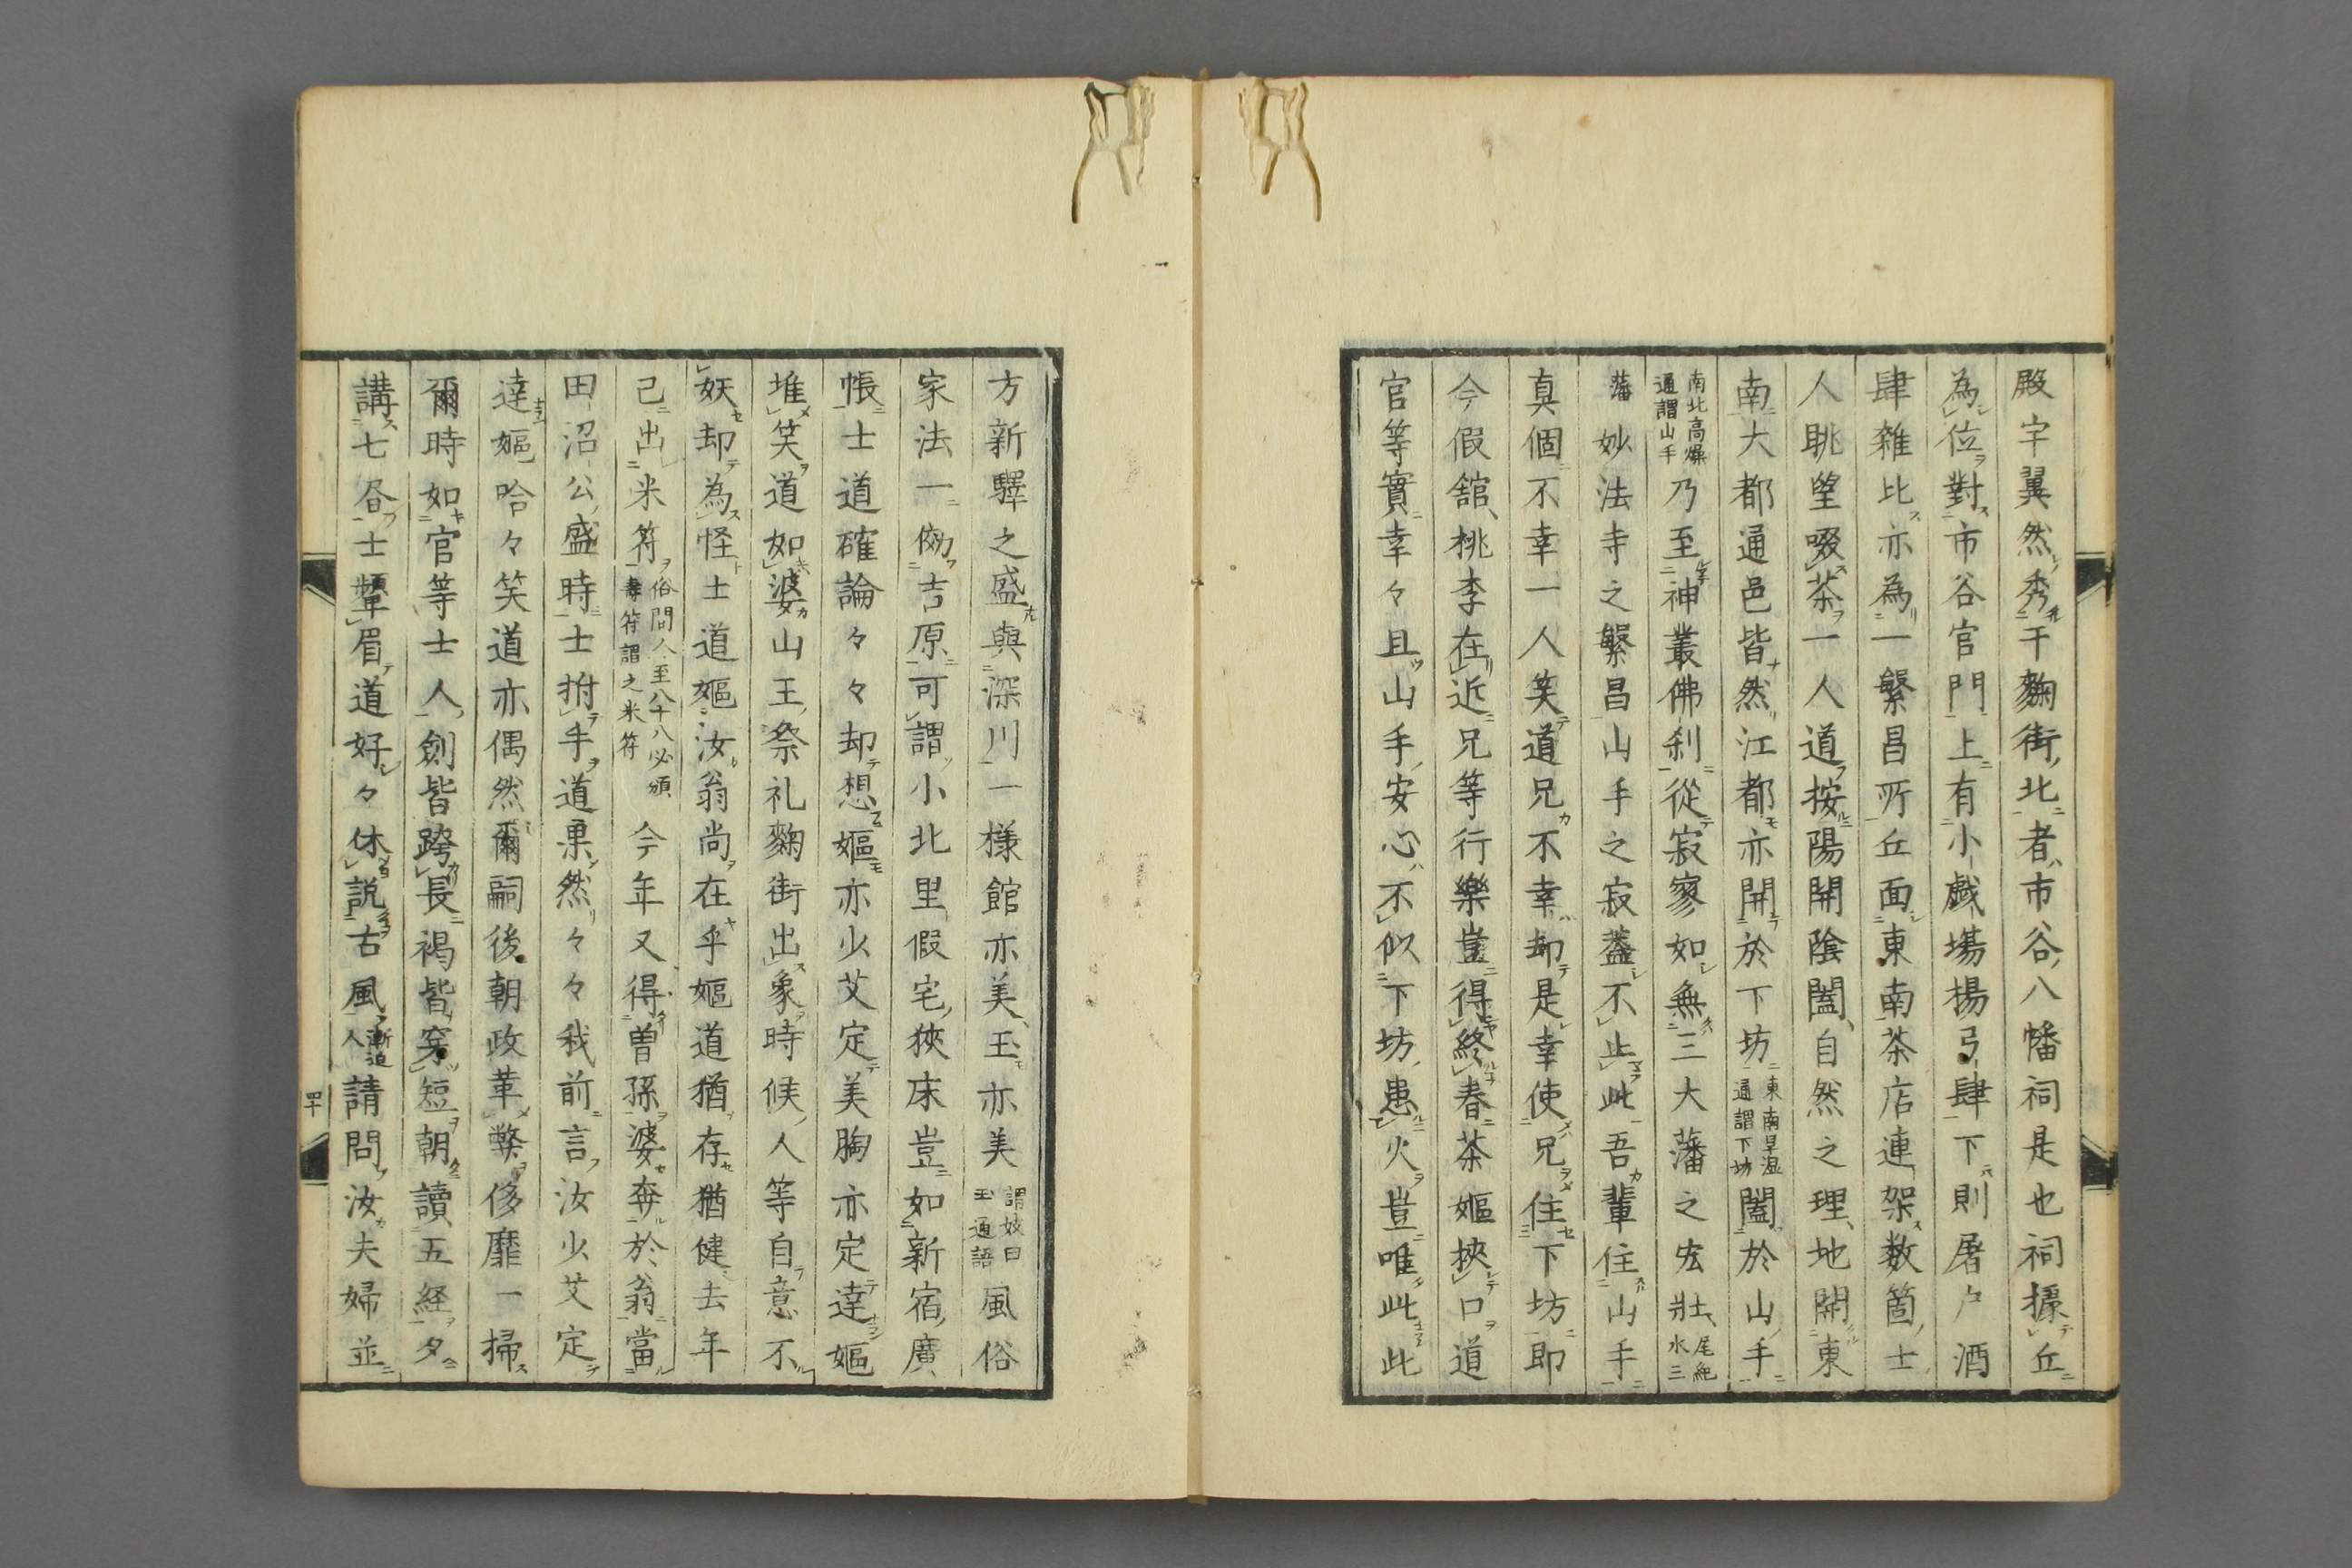 殿宇翼然秀干麴街北者市谷八幡祠是也祠據丘
為位對市谷官門上有小戯場揚弓肆下則屠戶酒
肆雜比亦為一繁昌所丘面東南茶店連架数箇士
人眺望啜茶一人道按陽開陰闔自然之理地開東
南大都通邑皆然江都亦開於下坊東南卑湿通謂下坊闔於山手
南北高燥通謂山手乃至神叢佛刹從寂寥如無三大藩之宏壯尾紀水三
藩妙法寺之繁昌山手之寂蓋不止此吾輩住山手
真個不幸一人笑道兄不幸却是幸使兄住下坊即
今假舘桃李在近兄等行樂豈得終春茶嫗挾口道
官等實幸々且山手安心不似下坊患火豈唯此此
方新驛之盛與深川一樣館亦美玉亦美謂妓曰玉通語風俗
家法一傚吉原可謂小北里假宅狹床豈如新宿廣
帳士道確論々々却想嫗亦少艾定美胸亦定達嫗
堆笑道如婆山王祭礼麴街出象時候人等自意不
妖却為怪士道嫗汝翁尚在乎嫗道猶存猶健去年
已出米符俗間人至八十八必頒壽符謂之米符今年又得曽孫婆奔於翁當
田沼公盛時士拊手道果然々々我前言汝少艾定
達嫗哈々笑道亦偶然爾嗣後朝政革弊侈靡一掃
爾時如官等士人劍皆跨長褐皆穿短朝讀五経夕
講七沓士顰眉道好々休説古風漸迫人請問汝夫婦並
四十